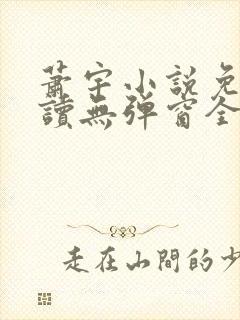 蕭宇小說免
讀無彈窗全
走在山間的少